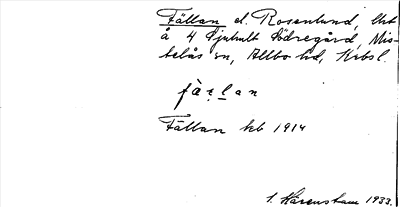 Fällan el. Rosenlund, lht
å 4 Sjuhult Södregård, Mis-
telås sn, Allbo hd, Krbsl.
fä̀ɽḷan
Fällan kb 1914
S. Kärenstam 1933.